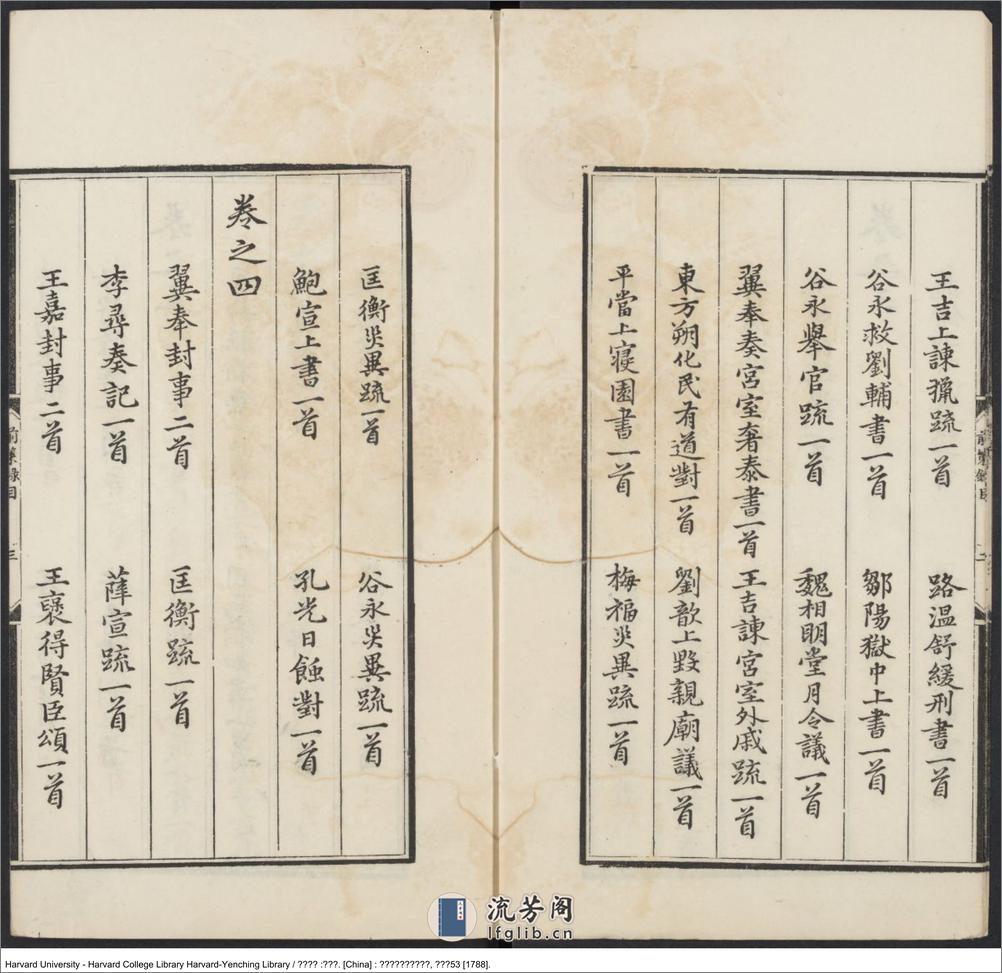 王吉上諫獵疏一首 路溫舒緩刑書一首
谷永救劉輔書一首 鄒陽獄中上書一首
谷永舉官疏一首 魏相明堂月令議一首
翼奉奏宮室奢泰書一首 王吉諫宮室外戚疏一首
東方朔化民有道對一首 劉歆上毀親廟議一首
平當上寢園書一首 梅福災異疏一首
匡衡災異疏一首 谷永災異疏一首
鮑宣上書一首 孔光日蝕對一首
卷之四
翼奉封事二首 匡衡疏一首
李尋奏記一首 薛宣疏一首
王嘉封事二首 王襃得賢臣頌一首
三
流芳阁
lfglib.cn
Harvard University - Harvard College Library Harvard-Yenching Library / ???? :???. [China] : ??????????, ???53 [1788].